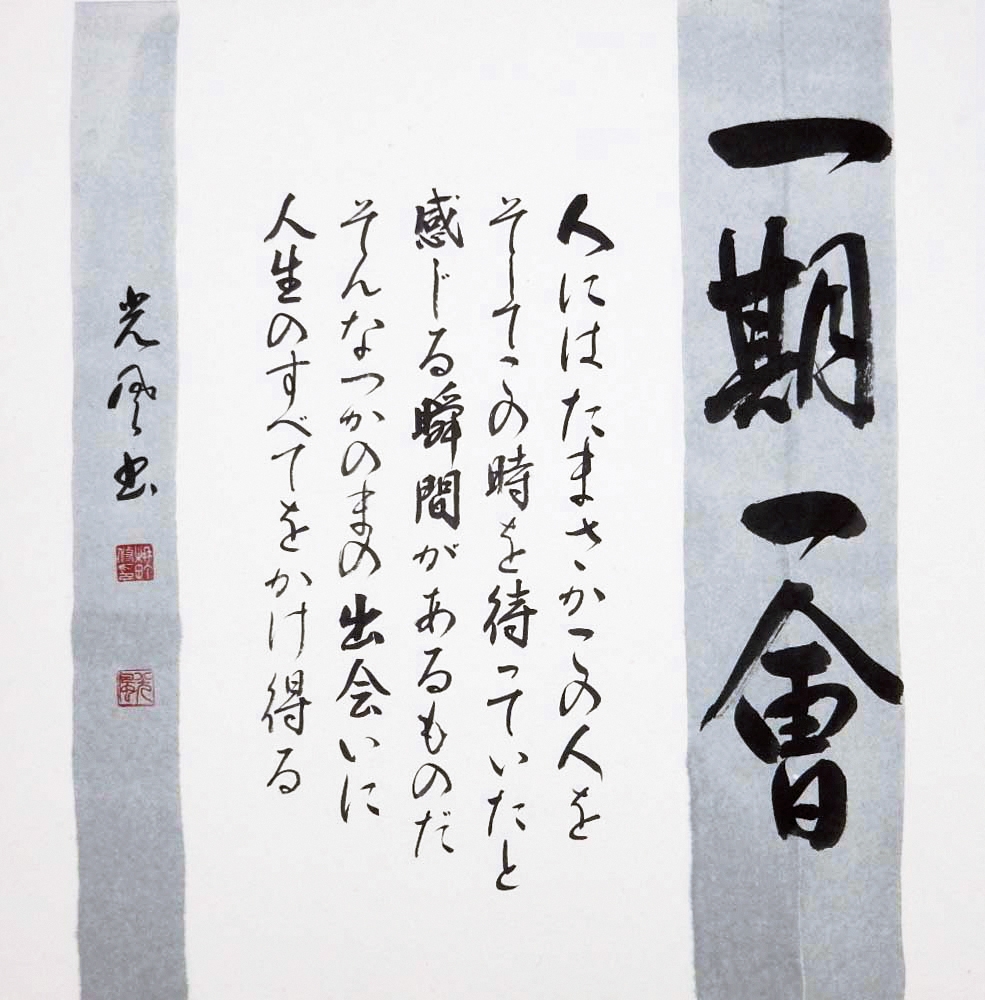 一期一會
人にはたまさかこの人を
そしてこの時を待っていたと
感じる瞬間があるものだ
そんなつかのまの出会いに
人生のすべてをかけ得る
光風書
光風